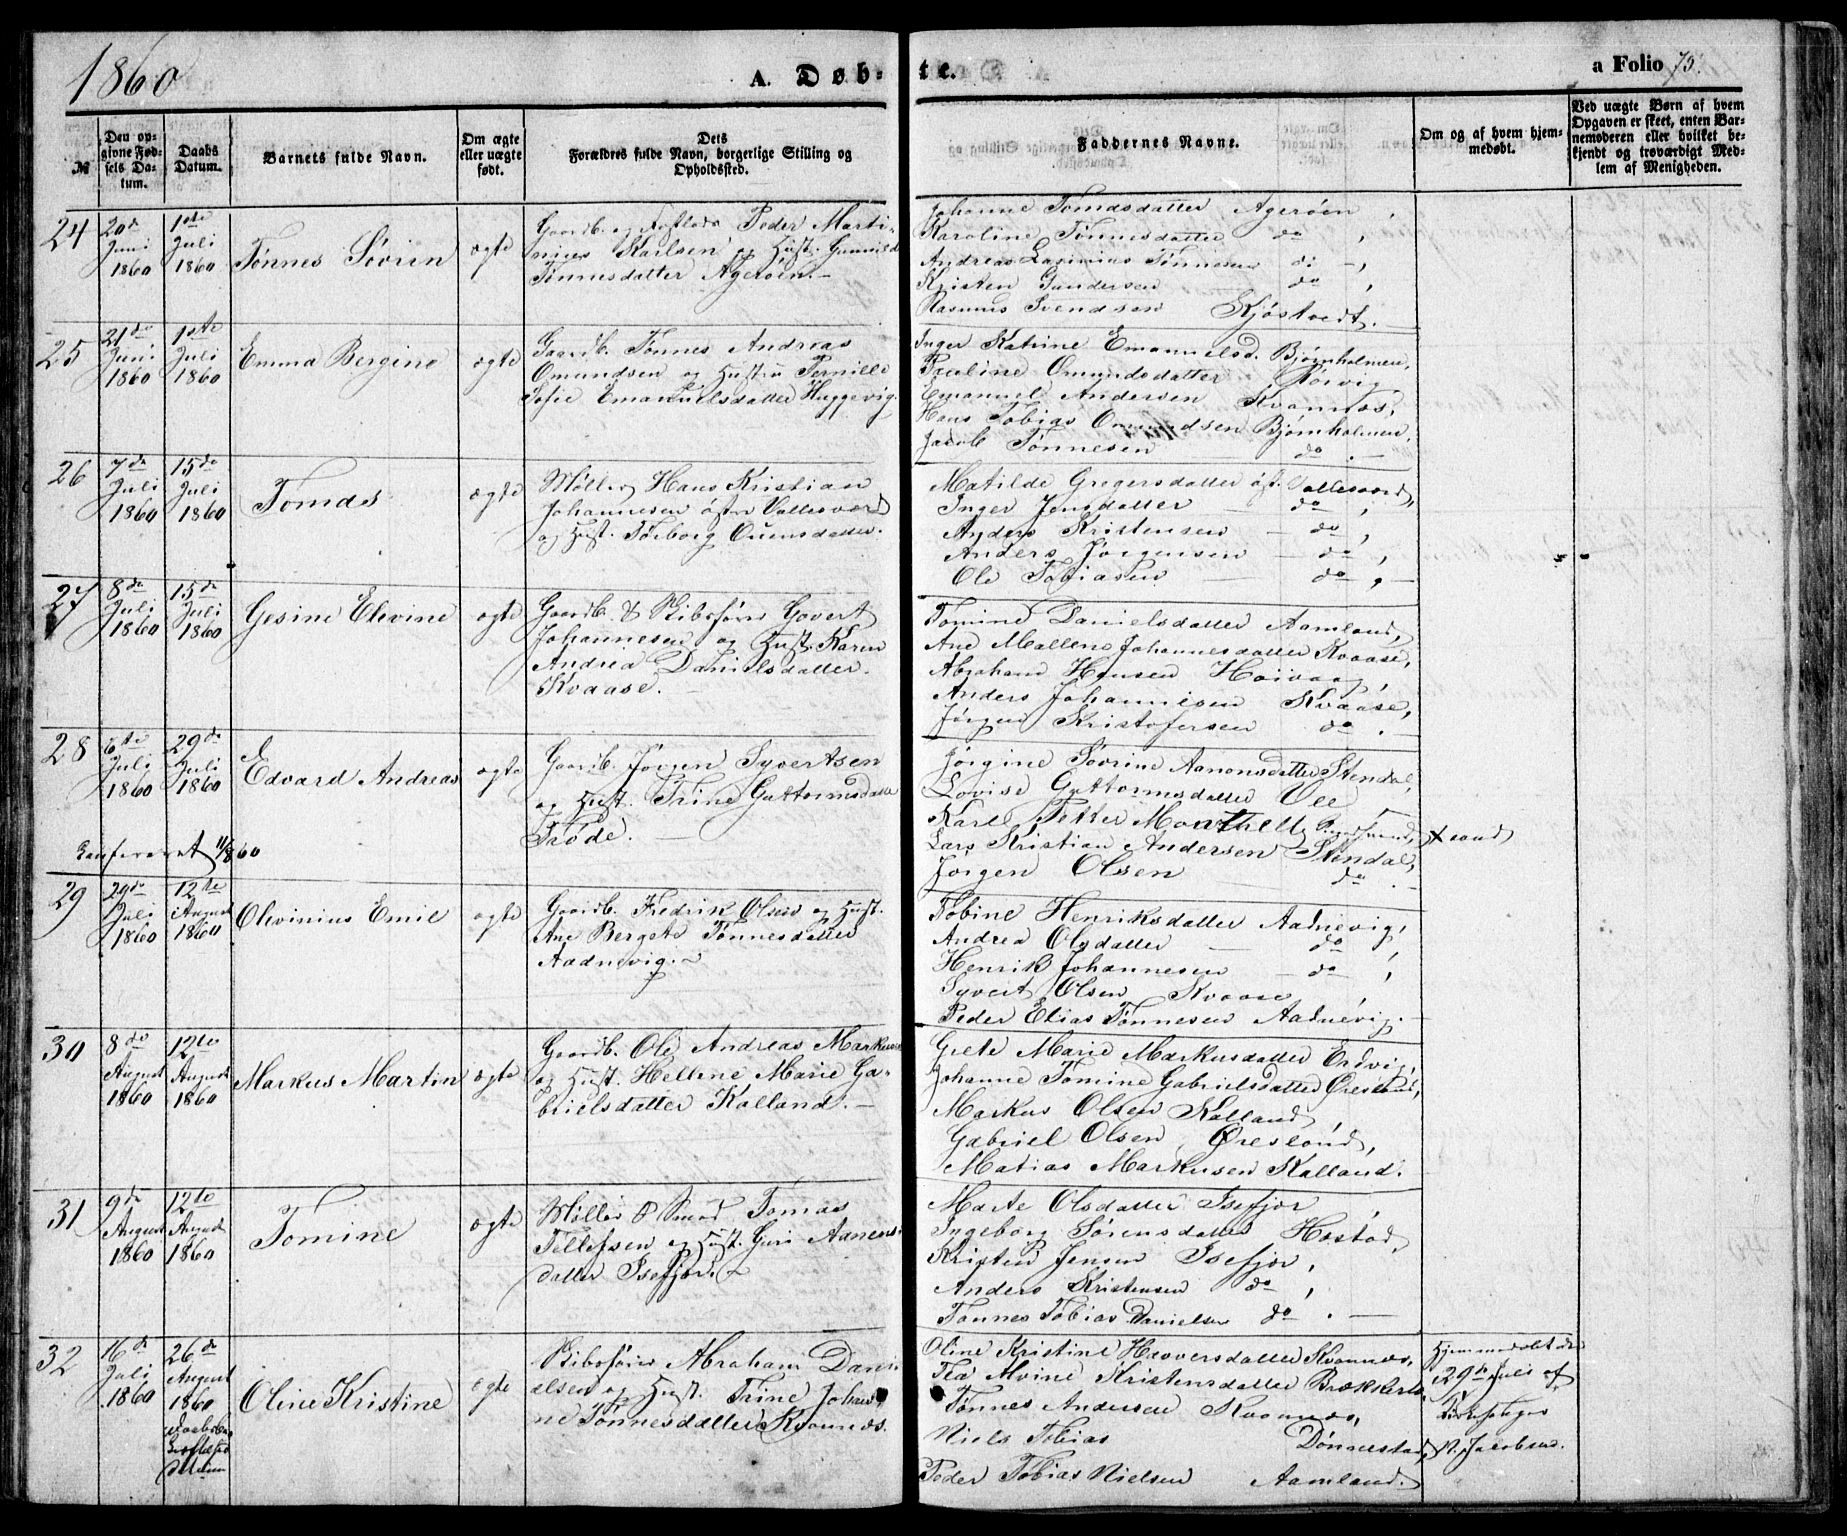 1860
A. Døb-
te.
a Folio 75.
№
Den op-
givne Fød-
sels Da-
tum.
Daabs
Datum.
Barnets fulde Navn.
Om ægte
eller uægte
født.
Dets
Forældres fulde Navn, borgerlige Stilling og
Opholdssted.
Faddernes Navne.
Om og af hvem hjem-
medøbt.
Ved uægte Børn af hvem
Opgaven er skeet, enten Bar-
nemoderen eller hvilket be-
kjendt og troværdigt Med-
lem af Menigheden.
24
20de
Juni
1860
1ste
Juli
1860
Tønnes Sørin
ægte
Gaardb. og Peder Marti-
nius Karlsen og Hust. Gunnild
Tønnesdatter Agerøen.
Johanne Tomdsdatter Agerøen,
Karoline Tønnesdatter do,
Andreas Tønnesen do,
Kristen Gundersen do,
Rasmus Svendsen Kjøstvedt.
25
21de
Juni
1860
1ste
Juli
1860
Emma Bergine
ægte
Gaardb. Tønnes Andreas
Omundsen og Hustru Pernille
Sofie Emanuelsdatter Huggevig.
Inger Katrine Emanuelsd. Bjørnholmen,
Pauline Omundsdatter Rørvig,
Emanuel Andersen Kvannes,
Hans Tobias Omundsen Bjørnholmen,
Jacob Tønnesen do.
26
7de
Juli
1860
15de
Juli
1860
Tomas
ægte
Møller Hans Kristian
Johannesen østre Vallesværd
og Hust. Torborg Ouensdatter.
Matilde Gregersdatter øst. Vallesværd,
Inger Jensdatter do,
Anders Kristensen do,
Anders Jørgensen do,
Ole Tobiasen do.
27
8de
Juli
1860
15de
Juli
1860
Gesine Elevine
ægte
Gaardb. & Skibsfører Govert
Johannesen og Hust. Karen
Andrea Danielsdatter
Kvaase.
Tomine Danielsdatter Aamland,
Ane Mallene Johannesdatter Kvaase,
Abraham Hansen Høivaag,
Anders Johannesen Kvaase,
Jørgen Kristofersen do.
28
6te
Juli
1860
29de
Juli
1860
Edvard Andreas
ægte
Gaardb. Jørgen Syvertsen
og Hust. Trine Guttormsdatter
Trøde.
Jørgine Sørine Aanonsdatter Stendal,
Lovise Guttormsdatter Vee
Karl Petter
Lars Kristian Andersen Stendal,
Jørgen Olsen do.
Konfereret 11/8 60
29
29de
Juli
1860
12te
August
1860
Olevinius Emil
ægte
Gaardb. Fredrik Olsen og Hust.
Ane Bergete Tønnesdatter
Aadnevig.
Tobine Henriksdatter Aadnevig,
Andrea Olsdatter do
Henrik Johannesen do,
Syvert Olsen Kvaase
Peder Elias Tønnesen Aadnevig.
30
8de
August
1860
12te
August
1860
Markus Martin
ægte
Gaardb. Ole Andreas Markusen
og Hust. Hellene Marie Ga-
brielsdatter Kalland.
Grete Marie Markusdatter Eidvig,
Johanne Tomine Gabrielsdatter Øresland,
Markus Olsen Kalland,
Gabriel Olsen Øresland,
Matias Markusen Kalland.
31
9de
August
1860
12te
August
1860
Tomine
ægte
Møller & Smed Tomas
Tellefsen og Hust. Guri Aanens-
datter Isefjær.
Marte Olsdatter Isefjær,
Ingeborg Sørensdatter Hæstad,
Kristen Jensen Isefjær,
Anders Kristensen do,
Tønnes Tobias Danielsen do.
32
16de
Juli
1860
26de
August
1860
Oline Kristine
ægte
Skibsfører Abraham Dani-
elsen og Hust. Trine Johan-
ne Tønnesdatter Kvannes.
Oline Kristine Haaversdatter Kvannes,
Tea Alvine Kristensdatter Brækkestø
Tønnes Andersen Kvannes,
Niels Tobias Dønnestad,
Peder Tobias Nielsen Aamland.
Hjemmedøbt den
29de Juli af
Kirkesanger
N. Jacobsen.